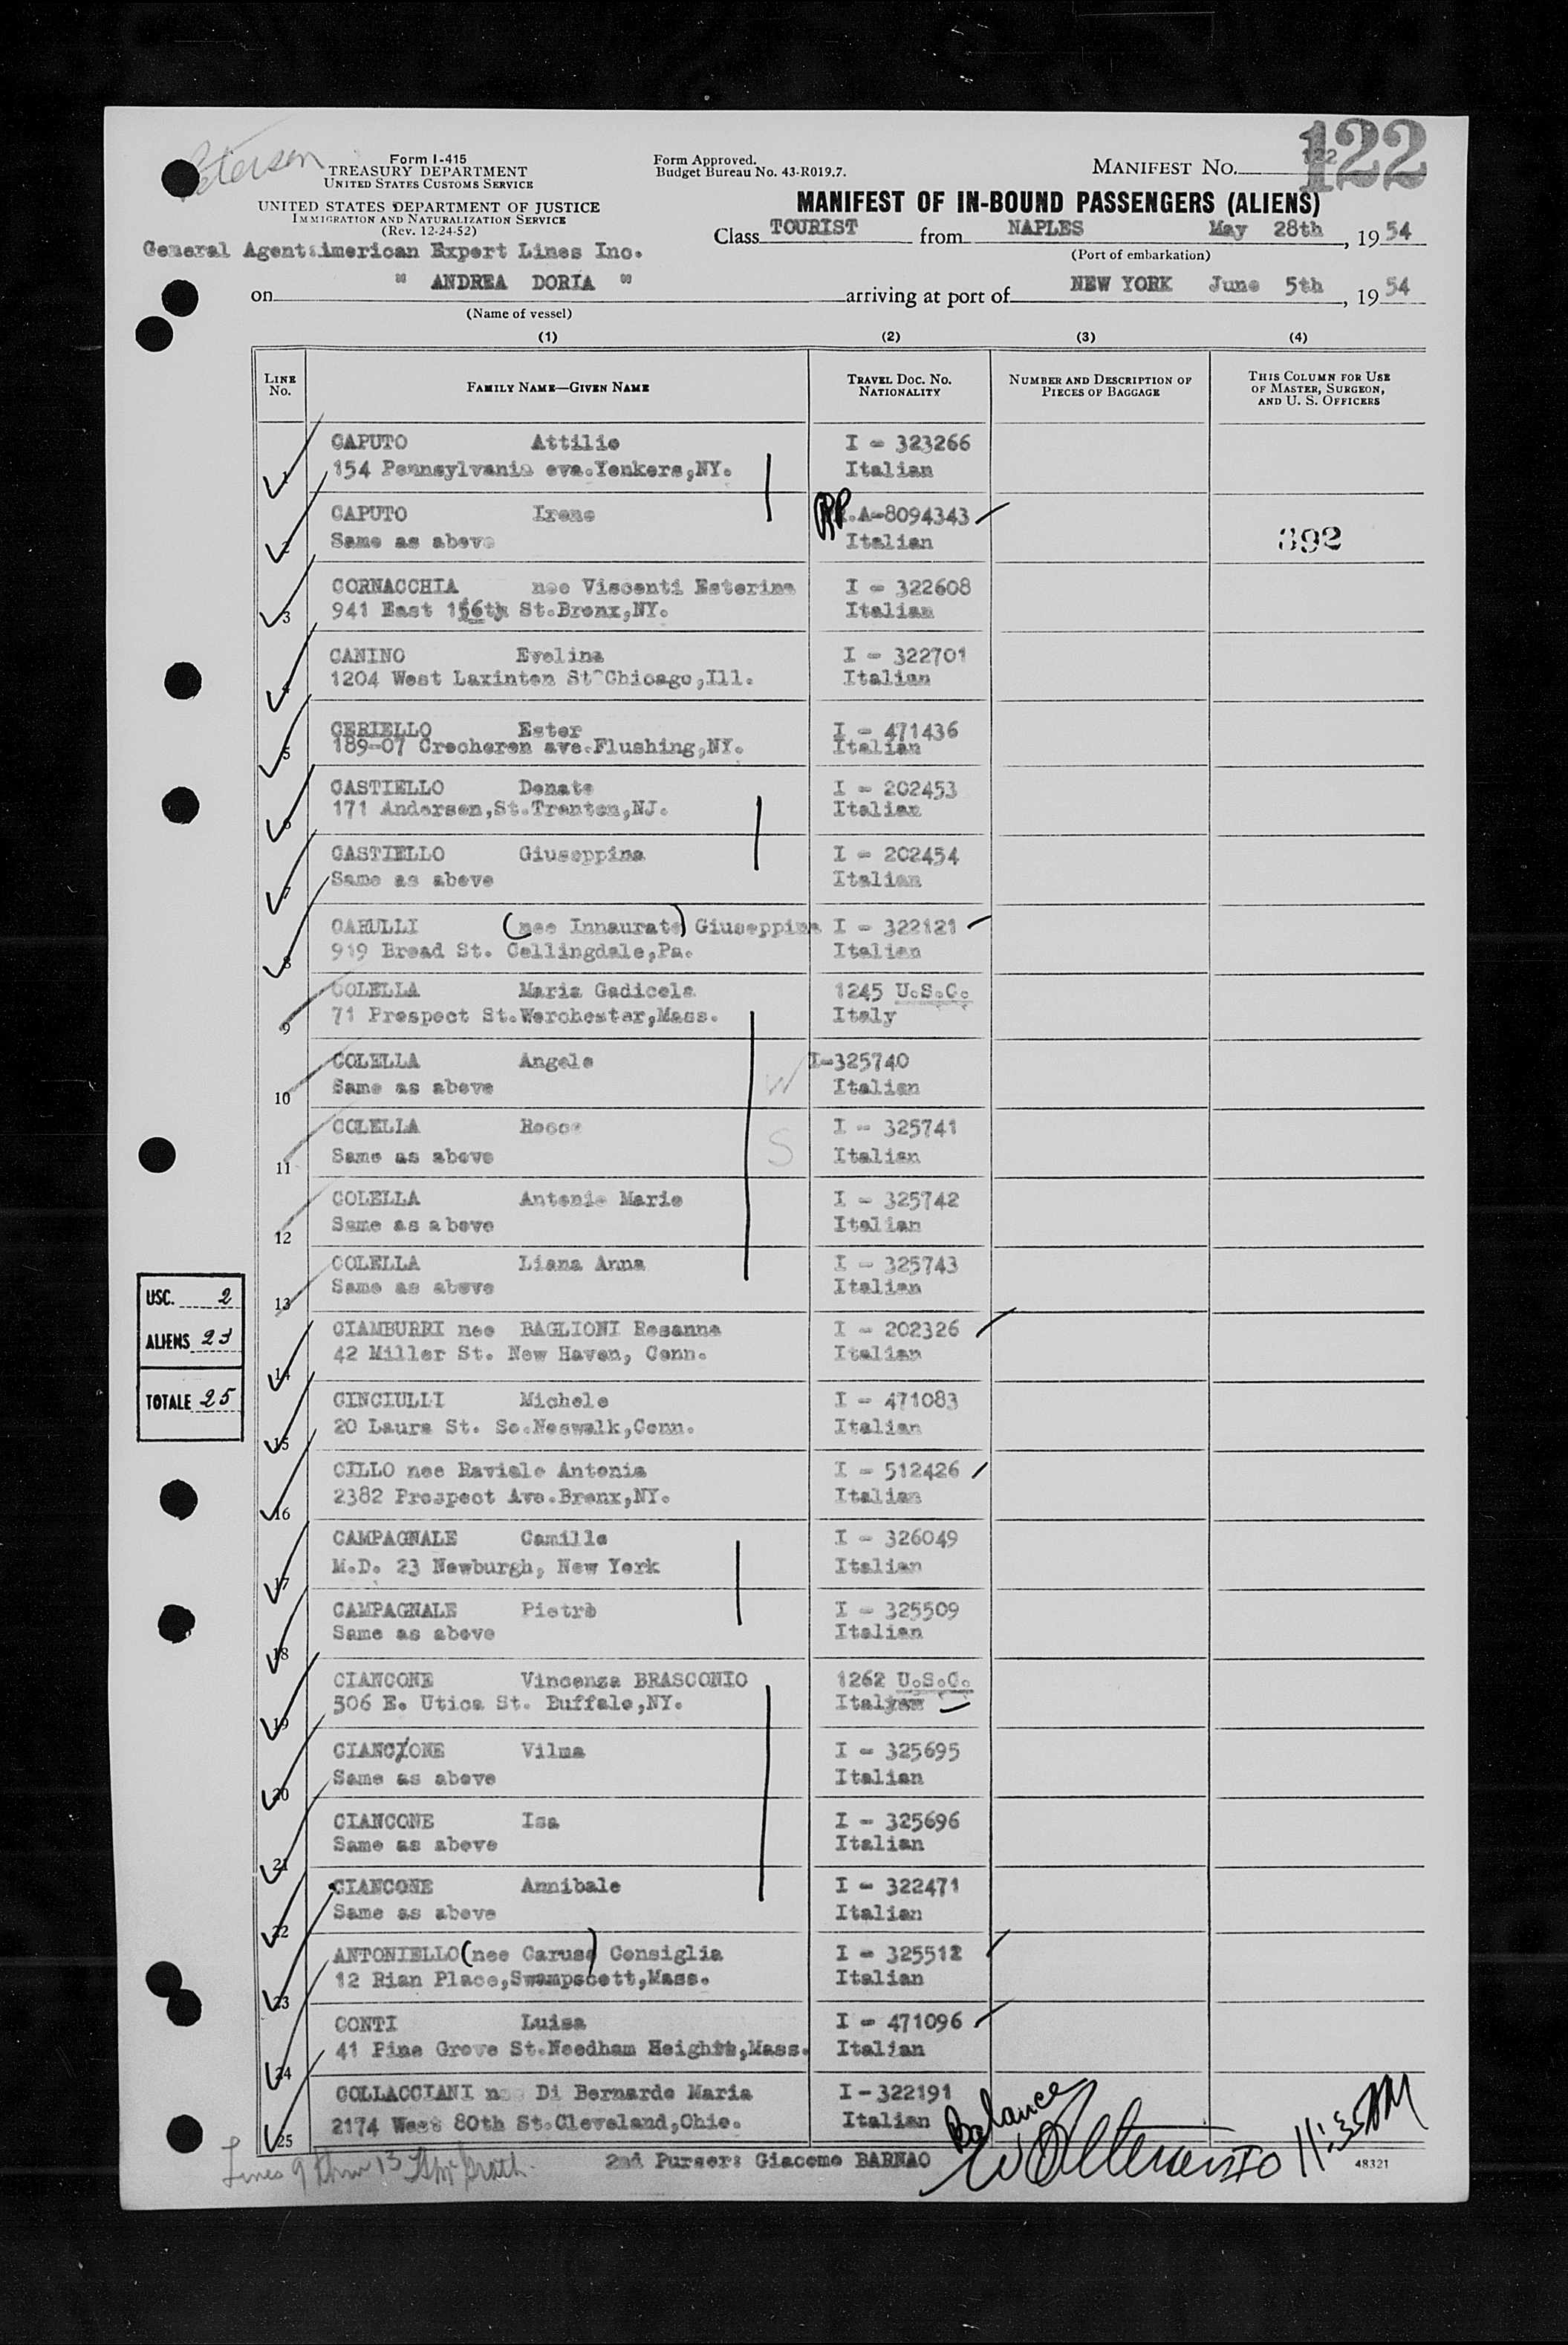 Petersen
Form I-415
TREASURY DEPARTMENT
UNITED STATES CUSTOMS SERVICE
UNITED STATES DEPARTMENT OF JUSTICE
IMMIGRATION AND NATURALIZATION SERVICE
(Rev. 12-24-52)
Form Approved.
Budget Bureau No. 43-R019.7.
MANIFEST NO. 122
122
MANIFEST OF IN-BOUND PASSENGERS (ALIENS)
Class TOURIST from NAPLES May 28th, 1954
(Port of embarkation)
General Agent: American Export Lines Inc.
on " ANDREA DORIA " arriving at port of NEW YORK June 5th, 1954
(Name of vessel)
(1) (2) (3) (4)
LINE NO.
FAMILY NAME—GIVEN NAME
TRAVEL DOC. NO. NATIONALITY
NUMBER AND DESCRIPTION OF PIECES OF BAGGAGE
THIS COLUMN FOR USE OF MASTER, SURGEON, AND U. S. OFFICERS
1 CAPUTO Attilio I - 323266
154 Pennsylvania eva.Yonkers,NY. Italian
2 CAPUTO Irene PP .A-8094343
Same as above Italian 392
3 CORNACCHIA nee Viscenti Esterina I - 322608
941 East 156th St.Bronx,NY. Italian
4 CANINO Evelina I - 322701
1204 West Laxinton St Chicago,Ill. Italian
5 CERIELLO Ester I - 471436
189-07 Crocheron ave.Flushing,NY. Italian
6 CASTIELLO Donato I - 202453
171 Anderson,St.Trenton,NJ. Italian
7 CASTIELLO Giuseppina I - 202454
Same as above Italian
8 CARULLI (nee Innaurato) Giuseppina I - 322121
919 Broad St. Collingdale,Pa. Italian
9 COLELLA Maria Gadicola 1245 U.S.C.
71 Prospect St.Worchester,Mass. Italy
10 COLELLA Angelo I-325740
Same as above W Italian
11 COLELLA Rocco I - 325741
Same as above S Italian
12 COLELLA Antonio Mario I - 325742
Same as above Italian
13 COLELLA Liana Anna I - 325743
Same as above Italian
USC. 2
ALIENS 23
TOTALE 25
14 CIAMBURRI nee BAGLIONI Rosanna I - 202326
42 Miller St. New Haven, Conn. Italian
15 CINCIULLI Michele I - 471083
20 Laura St. So.Noswalk,Conn. Italian
16 CILLO nee Raviele Antonia I - 512426
2382 Prospect Ave.Bronx,NY. Italian
17 CAMPAGNALE Camillo I - 326049
M.D. 23 Newburgh, New York Italian
18 CAMPAGNALE Pietro I - 325509
Same as above Italian
19 CIANCONE Vincenza BRASCONIO 1262 U.S.C.
506 E. Utica St. Buffalo,NY. Italy
20 CIANCIONE Vilma I - 325695
Same as above Italian
21 CIANCONE Isa I - 325696
Same as above Italian
22 CIANCONE Annibale I - 322471
Same as above Italian
23 ANTONIELLO (nee Caruso) Consiglia I - 325512
12 Rian Place,Swampscott,Mass. Italian
24 CONTI Luisa I - 471096
41 Pine Grove St.Needham Heights,Mass. Italian
25 COLLACCIANI nee Di Bernardo Maria I-322191
2174 West 80th St.Cleveland,Ohio. Italian
Balance
Lines 9 thru 13
2nd Purser: Giacomo BARNAO
11:35AM
48321